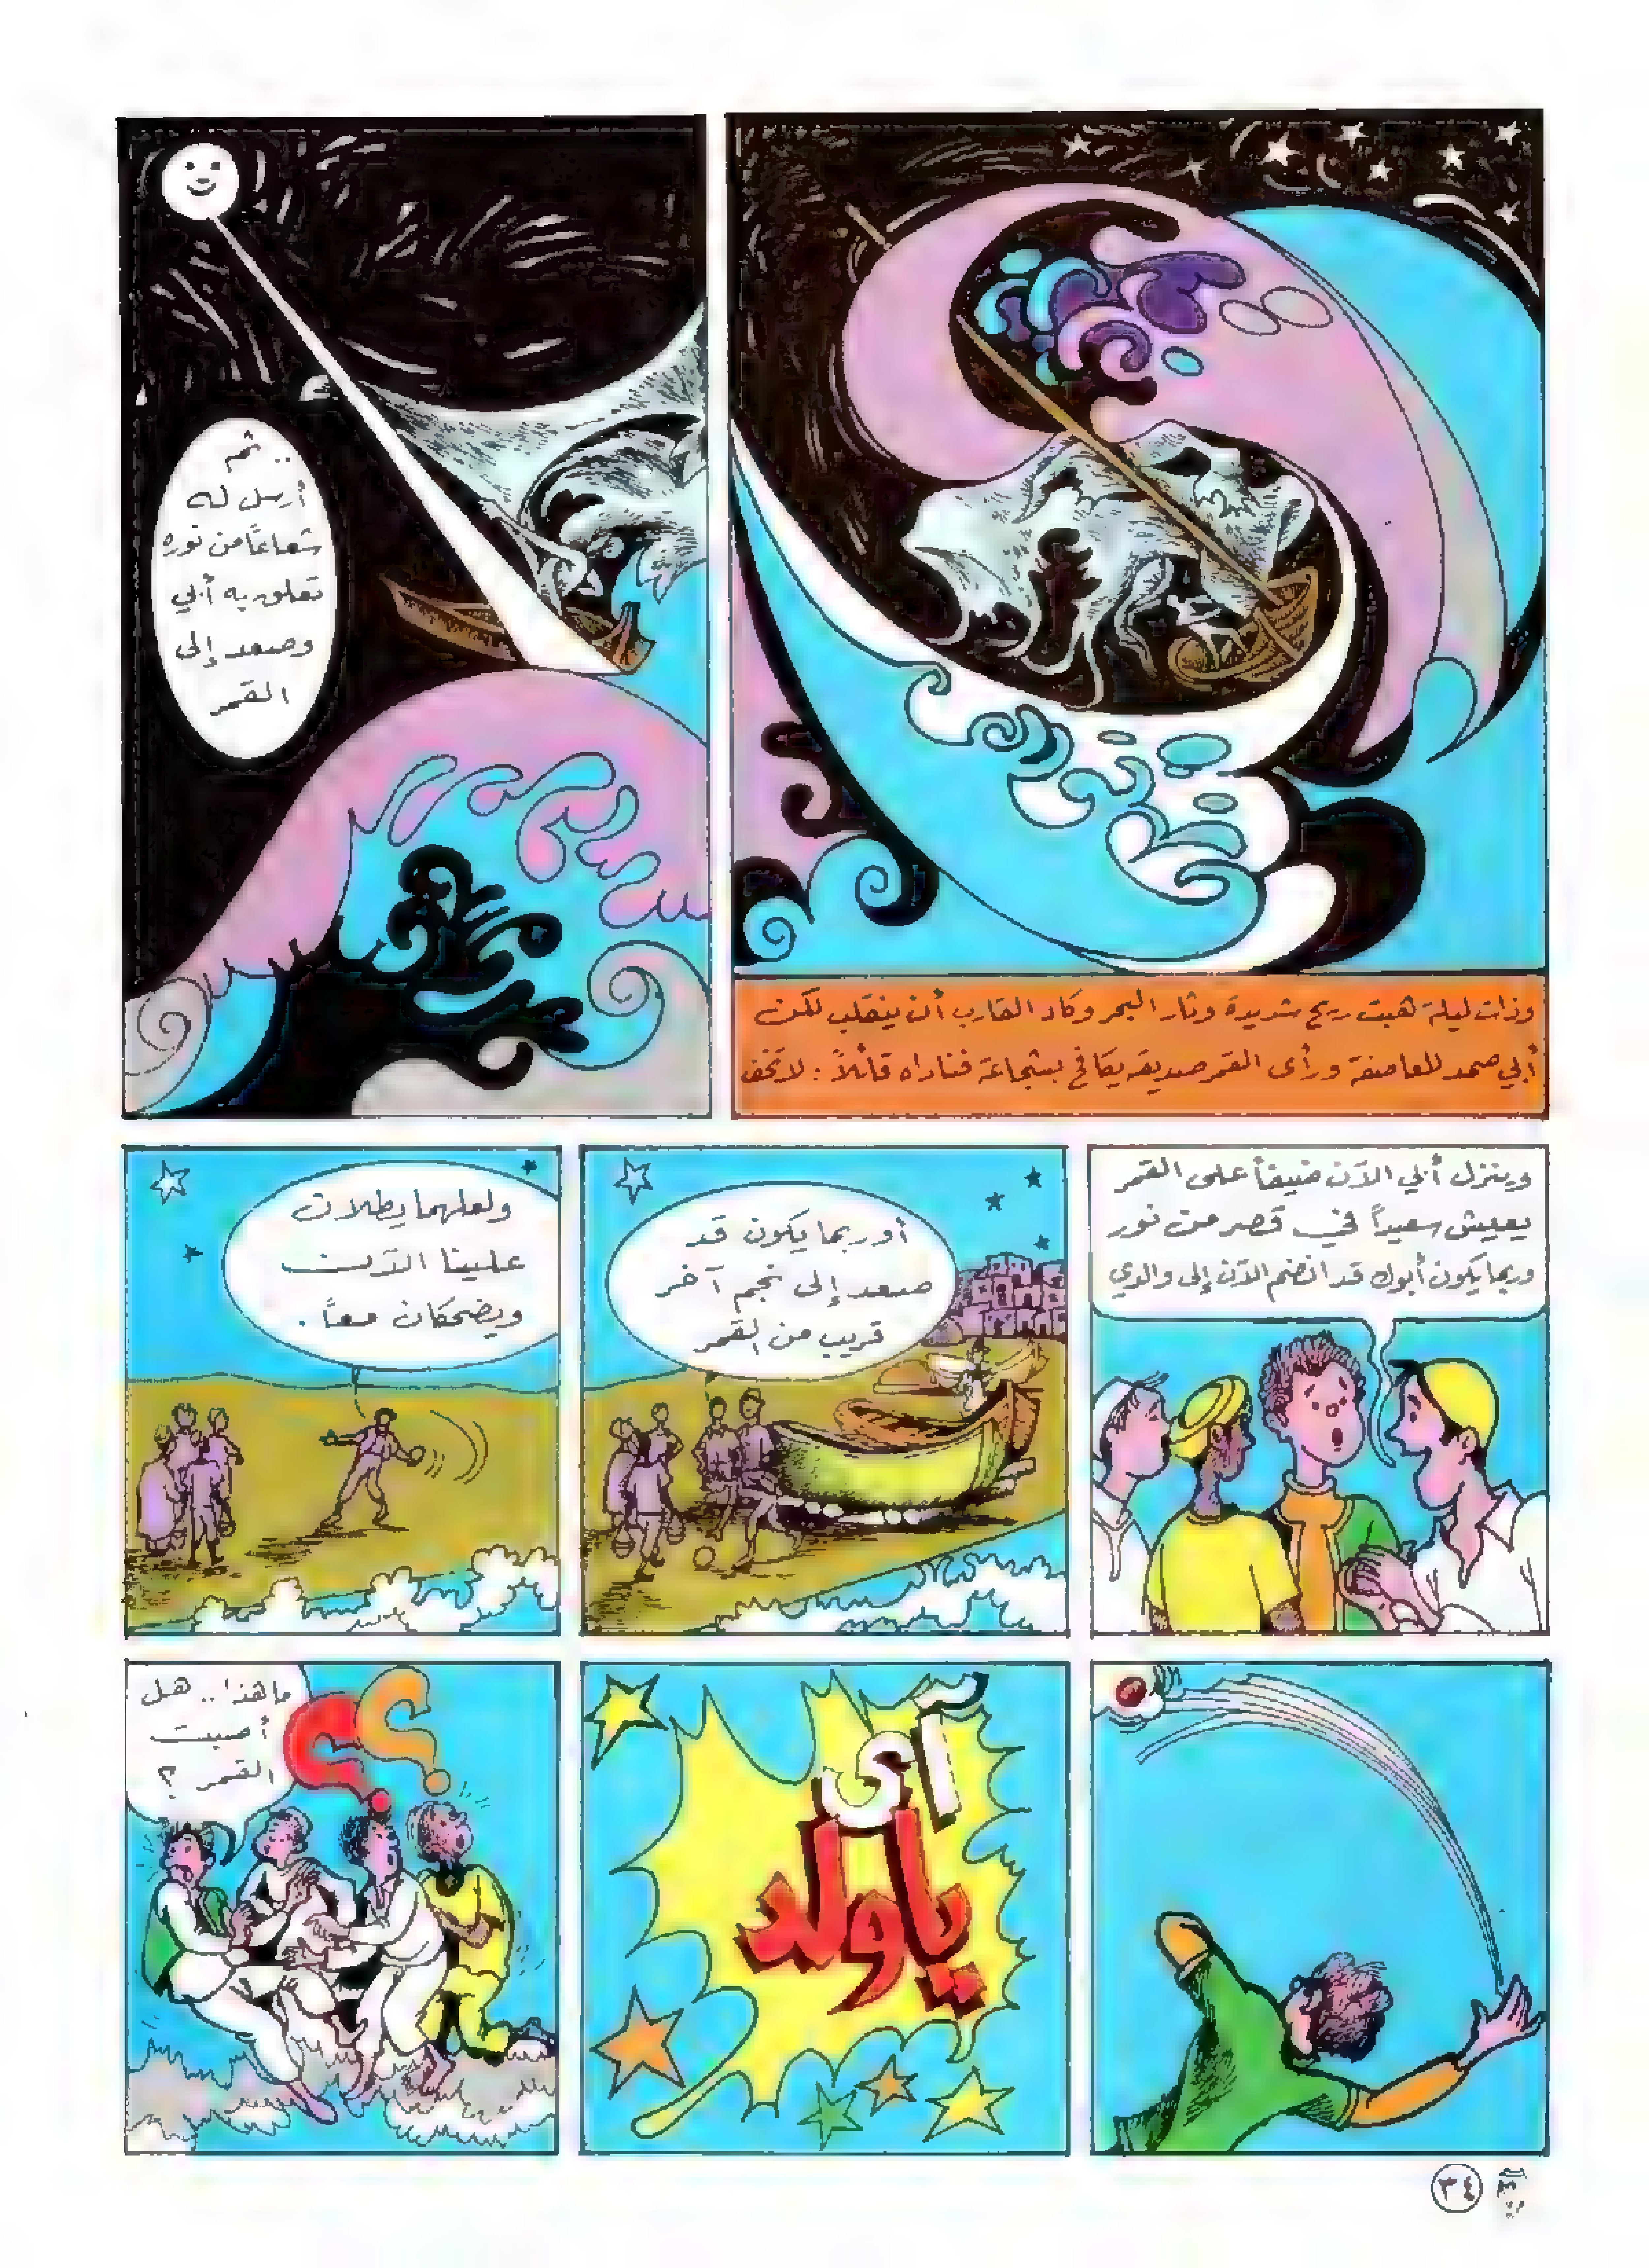 وذات ليلة هبت ريح شديدة وثار البحر وكاد القارب أن ينقلب لكن
أبي صمد للعاصفة ورأى القمر صديقه يكافح بشجاعة فناداه قائلاً : لا تخف
.. ثم
أرسل له
شعاعاً من نوره
تعلق به أبي
وصعد إلى
القمر
وينزل أبي الآن ضيفاً على القمر
يعيش سعيداً في قصر من نور
وربما يكون أبوك قد انضم الآن إلى والدي
أو ربما يكون قد
صعد إلى نجم آخر
قريب من القمر
ولعلهما يطلان
علينا الآن
ويضحكان معاً .
آى
ياولد
ما هذا .. هل
أصبت
القمر ؟
٣٤